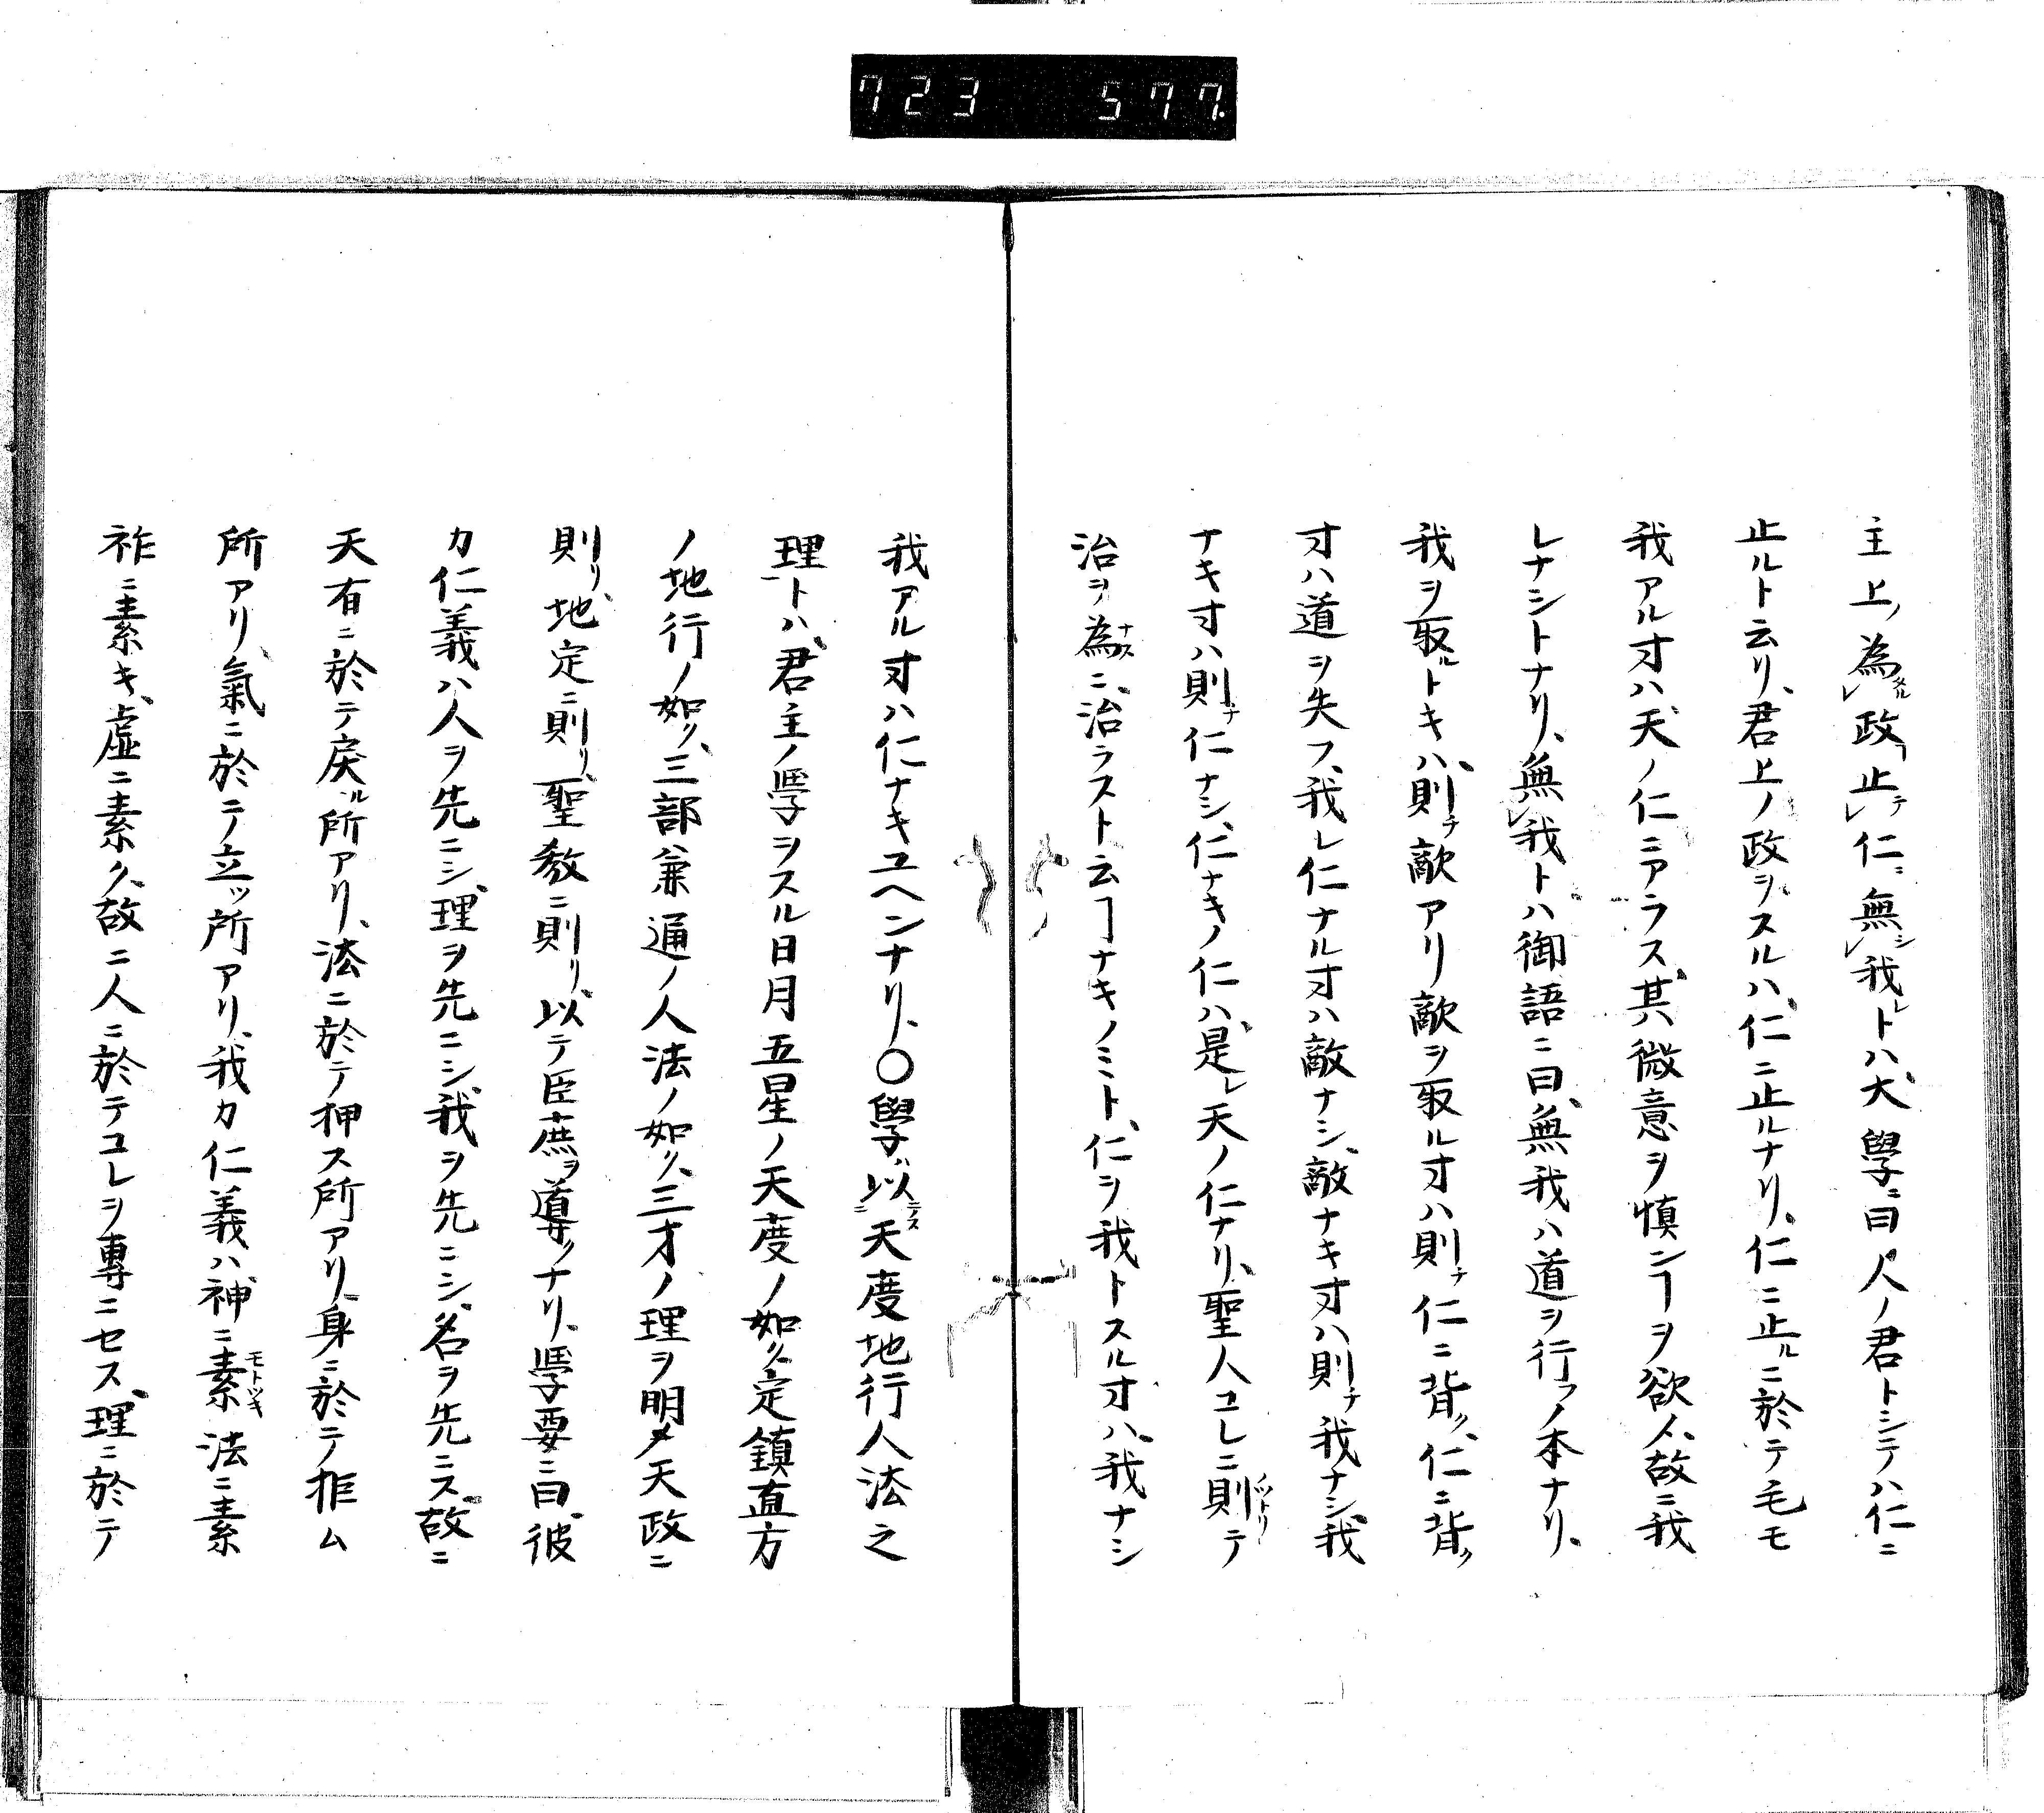 723 577.
主上ノ為ルレ政、止テレ仁ニ無シレ我レトハ、大學ニ曰人ノ君トシテハ仁ニ
止ルト云リ、君上ノ政ヲスルハ、仁ニ止ルナリ、仁ニ止ルニ於テ毛モ
我アル寸ハ天ノ仁ニアラス、其ハ微意ヲ慎ンヿヲ欲ス、故ニ我
レナシトナリ、無レ我トハ御語ニ曰、無我ハ道ヲ行フノ本ナリ、
我ヲ取ルトキハ、則チ敵アリ敵ヲ取ル寸ハ則チ仁ニ背ク、仁ニ背ク
寸ハ道ヲ失フ、我レ仁ナル寸ハ敵ナシ、敵ナキ寸ハ則チ我ナシ、我
ナキ寸ハ則チ仁ナシ、仁ナキノ仁ハ、是レ天ノ仁ナリ、聖人コレニ則ノットリテ
治ヲ為ナスニ、治ラスト云ヿナキノミト、仁ヲ我トスル寸ハ、我ナシ
我アル寸ハ仁ナキユヘンナリ、〇學以ニテス天度地行人法之
理一トハ、君主ノ學ヲスル日月五星ノ天度ノ如ク、定鎮直方
ノ地行ノ如ク、三部兼通ノ人法ノ如ク、三才ノ理ヲ明メ天政ニ
則リ、地定ニ則リ、聖教ニ則リ、以テ臣庶ヲ導クナリ、學要ニ曰、彼
カ仁義ハ人ヲ先ニシ、理ヲ先ニシ、我ヲ先ニシ、名ヲ先ニス、故ニ
天有ニ於テ戻ル所アリ、法ニ於テ押ス所アリ、身ニ於テノ拒ム
所アリ、氣ニ於テノ立ッ所アリ、我カ仁義ハ神ニ素モトツキ法ニ素
祚ニ素キ、虚ニ素ク、故ニ人ニ於テコレヲ專ニセス、理ニ於テ